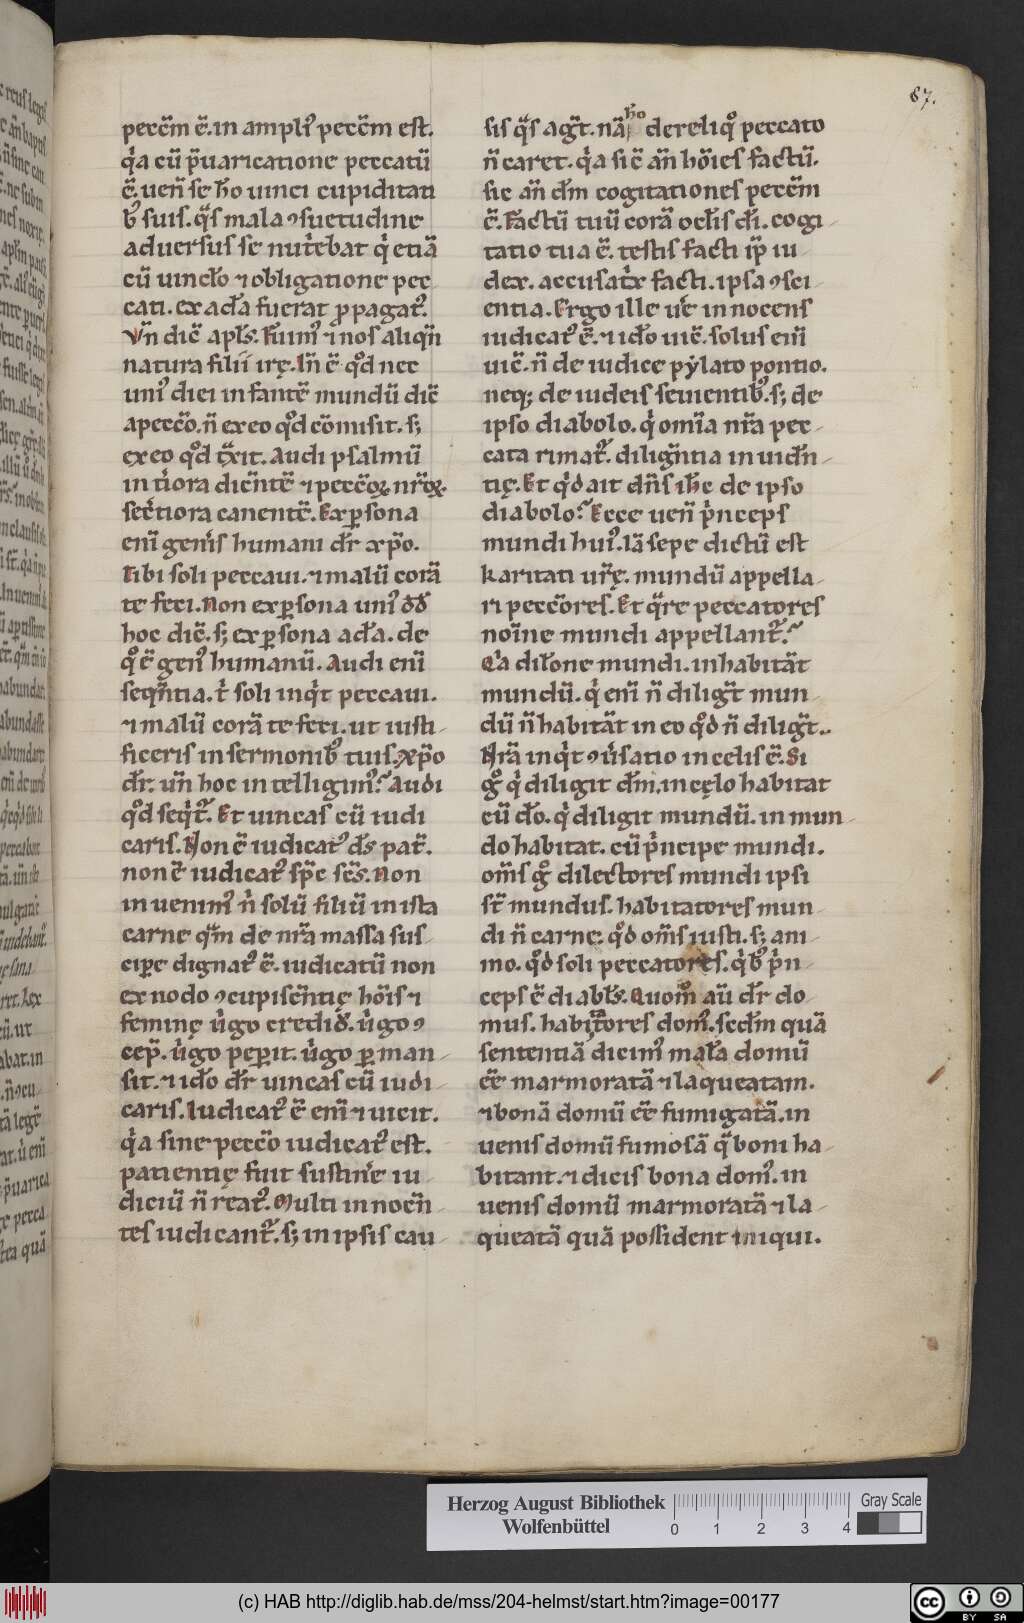 87.
peccm̄ ē. in ampliꝰ peccm̄ est.
qͥa cū p̄uaricatione peccatū
ē. ueñ se hō uinci cupiditati
bꝰ suis. qͣs mala ꝯsuetudine
aduersus se nut͛ebat qͥ etiā
cū uincl̄o ⁊ obligatione pec
cati. ex ada fuerat ꝓpagatꝰ.
Vn̄ dic̄ apl̄s. Fuimꝰ ⁊ nos aliqn̄
natura filii irę. In̄ ē qͦd nec
uniꝰ diei infantē mundū dic̄
a pecc̄o. n̄ ex eo qͦd cōmisit. s;
ex eo qͦd tͣxit. Audi psalmū
int͛iora dicn̄tē ⁊ pecc̄oꝝ nr̄oꝝ
secͥtiora canentē. Ex ꝑsona
eni̅ gen͛is humani dr̄ xp̄o.
Tibi soli peccaui. ⁊ malū corā
te feci. Non ex ꝑsona uniꝰ dd̄
hoc dic̄. s; ex ꝑsona ada. de
qͦ ē genꝰ humanū. Audi eni̅
seqn̄tia. t͛ soli inqͥt peccaui.
⁊ malū corā te feci. ut iusti
ficeris in sermonibꝰ tuis. xp̄o
dr̄. un̄ hoc intelligimꝰ? Audi
qͦd seqͥtꝰ. Et uincas cū iudi
caris. Non ē iudicatꝰ ds̄ pat̄.
non ē iudicatꝰ sp̄c sc̄s. Non
inuenimꝰ n̄ solū filiū in ista
carne qͣm de nr̄a massa sus
cipe dignatꝰ ē. iudicatū non
ex nodo ꝯcupiscn̄tię hōis ⁊
feminę uͥgo credid̄. uͥgo ꝯ
cep̄. uͥgo pep̄it. uͥgo ꝑman
sit. ⁊ idō dr̄ uincas cū iudi
caris. Iudicatꝰ ē eni̅ ⁊ uicit.
qͥa sine pecc̄o iudicatꝰ est.
patientię fuit sustin͛e iu
diciū n̄ reatꝰ. Multi innocn̄
tes iudicantꝰ. s; in ipsis cau
sis qͣs agt̄. nā hō derelicqͦ peccato
n̄ caret. qͥa sic̄ an̄ hōies factū.
sic an̄ dm̄ cogitationes peccm̄
ē. Factū tuū corā ocl̄is dī. cogi
tatio tua ē. testis facti ip̄ iu
dex. accusatͥx facti. ipsa ꝯsci
entia. Ergo ille u͛e innocens
iudicatꝰ ē. ⁊ idō uic̄. solus eni̅
uic̄. n̄ de iudice pẏlato pontio.
neq; de iudeis seuientibꝰ. s; de
ipso diabolo. qͥ om̄ia nr̄a pec
cata rimatꝰ. dilign̄tia inuidn̄
tię. Et qͥd ait dn̄s ih̄c de ipso
diabolo? Ecce ueñ pͥnceps
mundi huiꝰ. Iā sepe dictū est
karitati ur̄ę. mundū appella
ri pecc̄ores. Et qͣre peccatores
noi̅e mundi appellantꝰ?
Qͥa dil̄one mundi. inhabitāt
mundū. qͥ eni̅ n̄ diligt̄ mun
dū n̄ habitāt in eo qͦd n̄ diligt̄.
Nr̄a inqͥt ꝯu͛satio in celis ē. Si
gͦ qͥ diligit dm̄. in cęlo habitat
cū dō. qͥ diligit mundū. in mun
do habitat. cū pͥncipe mundi.
om̄s gͦ dilectores mundi ipsi
st̄ mundus. habitatores mun
di n̄ carne. qͦd om̄s iusti. s; ani
mo. qͦd soli peccatores. qͥbꝰ pͥn
ceps ē diabl̄s. Quom̊ aū dr̄ do
mus. habitͣtores domꝰ. secdm̄ quā
sententiā dicimꝰ mala domū
ēe marmoratā ⁊ laqueatam.
⁊ bonā domū ēe fumigatā. in
uenis domū fumosā qͣ boni ha
bitant. ⁊ dicis bona domꝰ. in
uenis domū marmoratā ⁊ la
queatā quā possident iniqui.
Herzog August Bibliothek
Wolfenbüttel
0 1 2 3 4
Gray Scale
(c) HAB http://diglib.hab.de/mss/204-helmst/start.htm?image=00177
cc BY SA